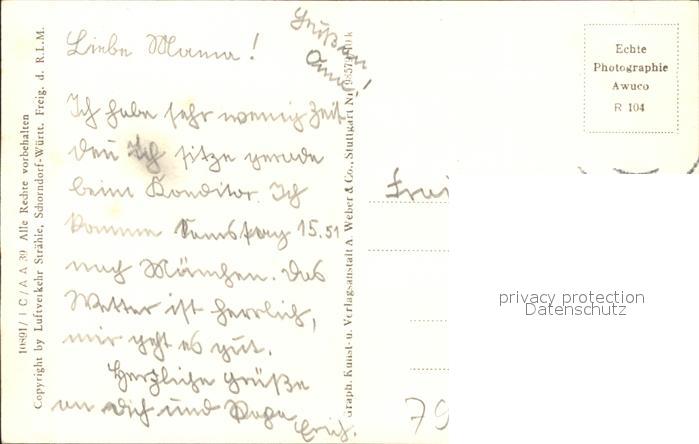 Liebe Mama!
Grüß an
Ich habe sehr wenig Zeit
den Ich sitze gerade
beim Konditor. Ich
komme Samstag 15.51
nach München. Das
Wetter ist herrlich,
mir geht es gut.
Herzliche Grüße
an Dich und Papa
Erich.
10891/ I C / A A 39 Alle Rechte vorbehalten
Copyright by Luftverkehr Strähle, Schorndorf-Württ. Freig. d. R.L.M.
Graph. Kunst- u. Verlagsanstalt A. Weber & Co., Stuttgart
Echte
Photographie
Awuco
R 104
79
privacy protection
Datenschutz